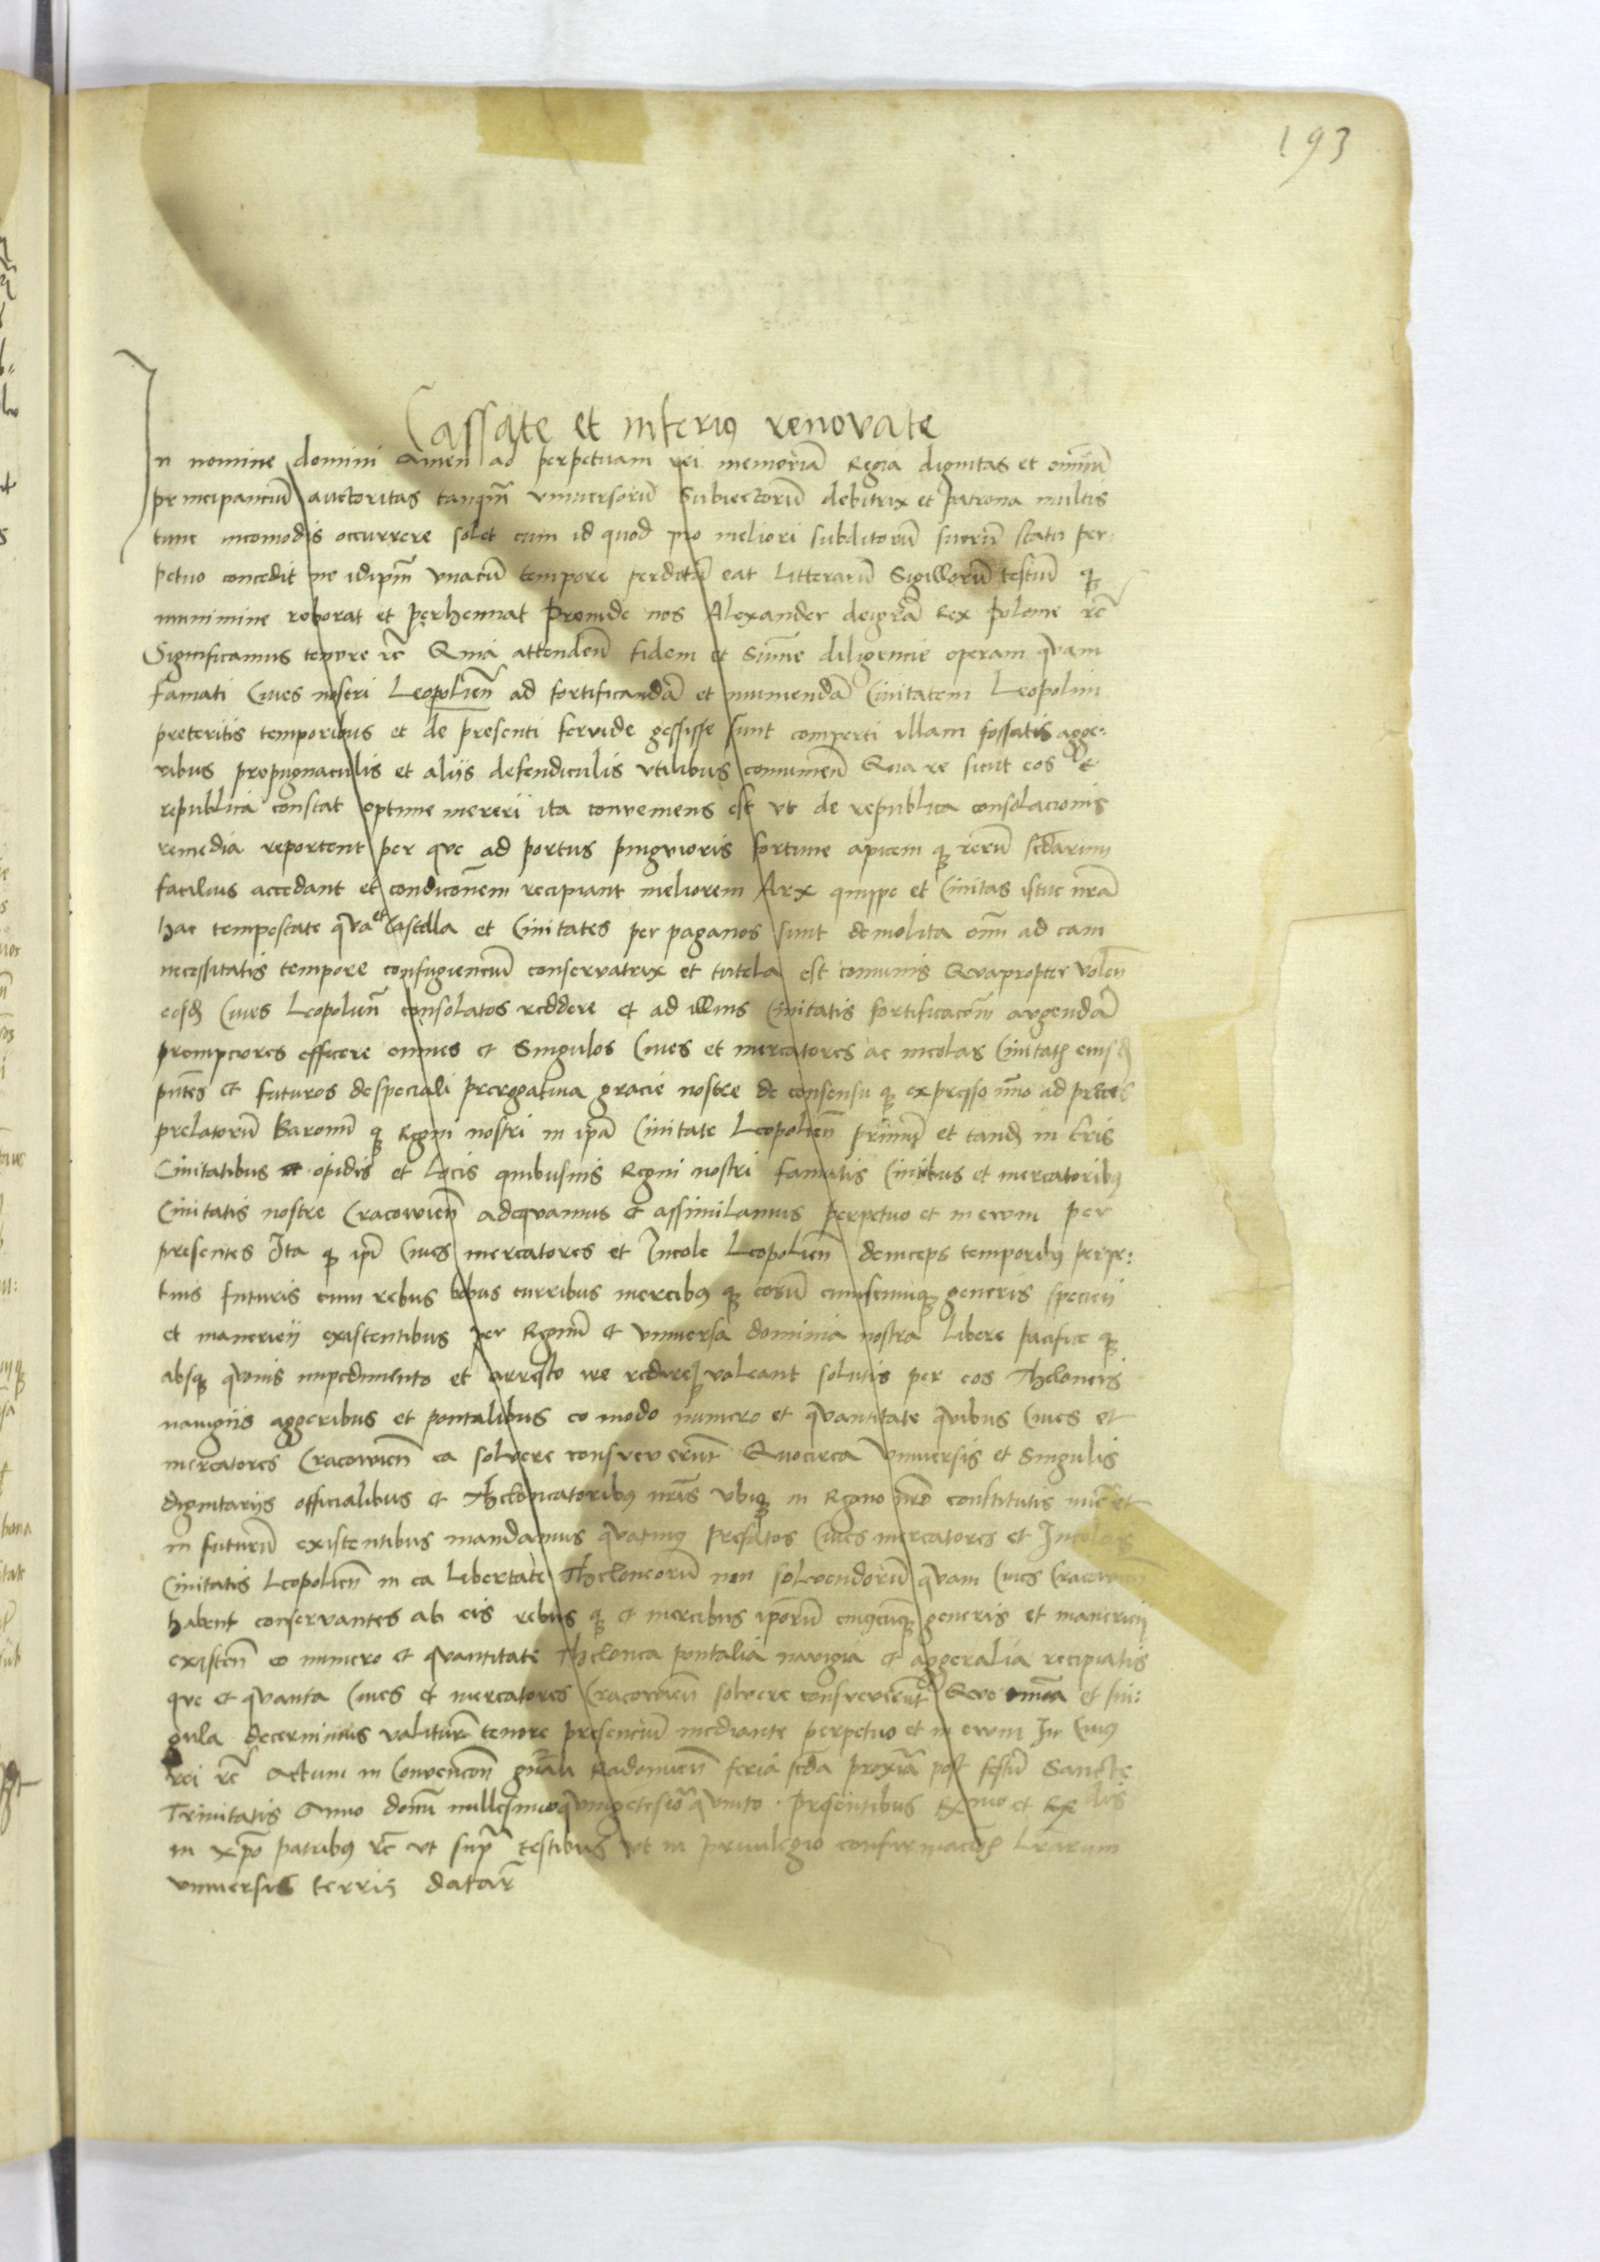 193
Cassate et inferius renovate
In nomine domini Amen ad perpetuam rei memoriā Regia dignitas et omniū
principanciū auctoritas tanqm̄ universorū Subiectorū debitrix et patrona multis
tunc incomodis occurrere solet cum id quod pro meliori subditorū suorū statu per:
petuo concedit ne idipm̄ vnacū tempore perditū eat Litterarū Sigillorū testiū qz
munimine roborat et perhennat Proinde nos Alexander dei grā Rex polonie rc̄
Significamus tenore rc̄ Quia attenden̄ fidem et Sum̄e diligencie operam quam
famati Cives nostri Leopolien̄ ad fortificandā et muniendā Civitatem Leopolim
preteritis temporibus et de presenti fervide gessisse sunt comperti illam fossatis agge:
ribus propugnaculis et aliis defendiculis utilibus comunien̄ Qua re sicut eos de
republica constat optime mereri ita conveniens est ut de republica consolacionis
remedia reportent per que ad portus pinguioris fortune apicem qz rerum
facilius accedant et condicōnem recipiant meliorem Arx quippe et Civitas istuc nr̄a
hac tempestate qua et Castella et Civitates per paganos sunt demolita om̄i ad eam
necessitatis tempore confugienciū conservatrix et tutela est comunis Quapropter volen̄
eosdē Cives Leopolien̄ consolatos reddere et ad illius Civitatis fortificacōm augendā
prompciores efficere omnes et Singulos Cives et mercatores ac incolas Civitatis eiusdē
pn̄tes et futuros de speciali prerogativa gracie nostre de consensu qz expresso
prelatorū Baronū qz Regni nostri in ipā Civitate Leopolien̄ primū et tandē in
Civitatibus et opidis et Locis quibusvis Regni nostri famatis Civibus et mercatoribus
Civitatis nostre Cracovien̄ adequamus et assimilamus perpetuo et in evum per
presentes Ita qz ipī Cives mercatores et Incole Leopolien̄ deinceps temporibus perpe:
tuis futuris cum rebus curribus mercibus qz eorū cuiuscunqz generis speciei
et manerieii existentibus per Regnū et vniversa dominia nostra Libere pacifice qz
absqz quovis impedimento et arresto ire redireqz valeant solutis per eos Theloneis
navigiis aggeribus et pontalibus eo modo numero et quantitate quibus Cives et
mercatores Cracovien̄ ea solvere consueverūt Quocirca Vniversis et Singulis
dignitariis officialibus et Theloneatoribus nr̄is vbiqz in Regno nr̄o constitutis nūc et
in futurū existentibus mandamus quatinus prefatos Cives mercatores et Incolas
Civitatis Leopolien̄ in ea Libertate Theloneorū non solvendorū quam Cives Cracovien̄
habent conservantes ab eis rebus qz et mercibus ipsorū cuiuscunqz generis et manerieii
existen̄ eo numero et quantitate Thelonea pontalia navigia et aggeralia recipiatis
que et quanta Cives et mercatores Cracovien̄ solvere consueverūt Que omnia et sin:
gula decernimus valiturū tenore presenciū mediante perpetuo et in evum In Cuius
rei rc̄ Actum in Convencōn gn̄ali Radomien̄ feria scda proxīa post festū Sancte
Trinitatis Anno domī millesimo quingetesiō quinto presentibus et
in xp̄o patribus rc̄ vt sup̄ testibus vt in privilegio confirmacōis Lrarum
vniversis terris datar̄